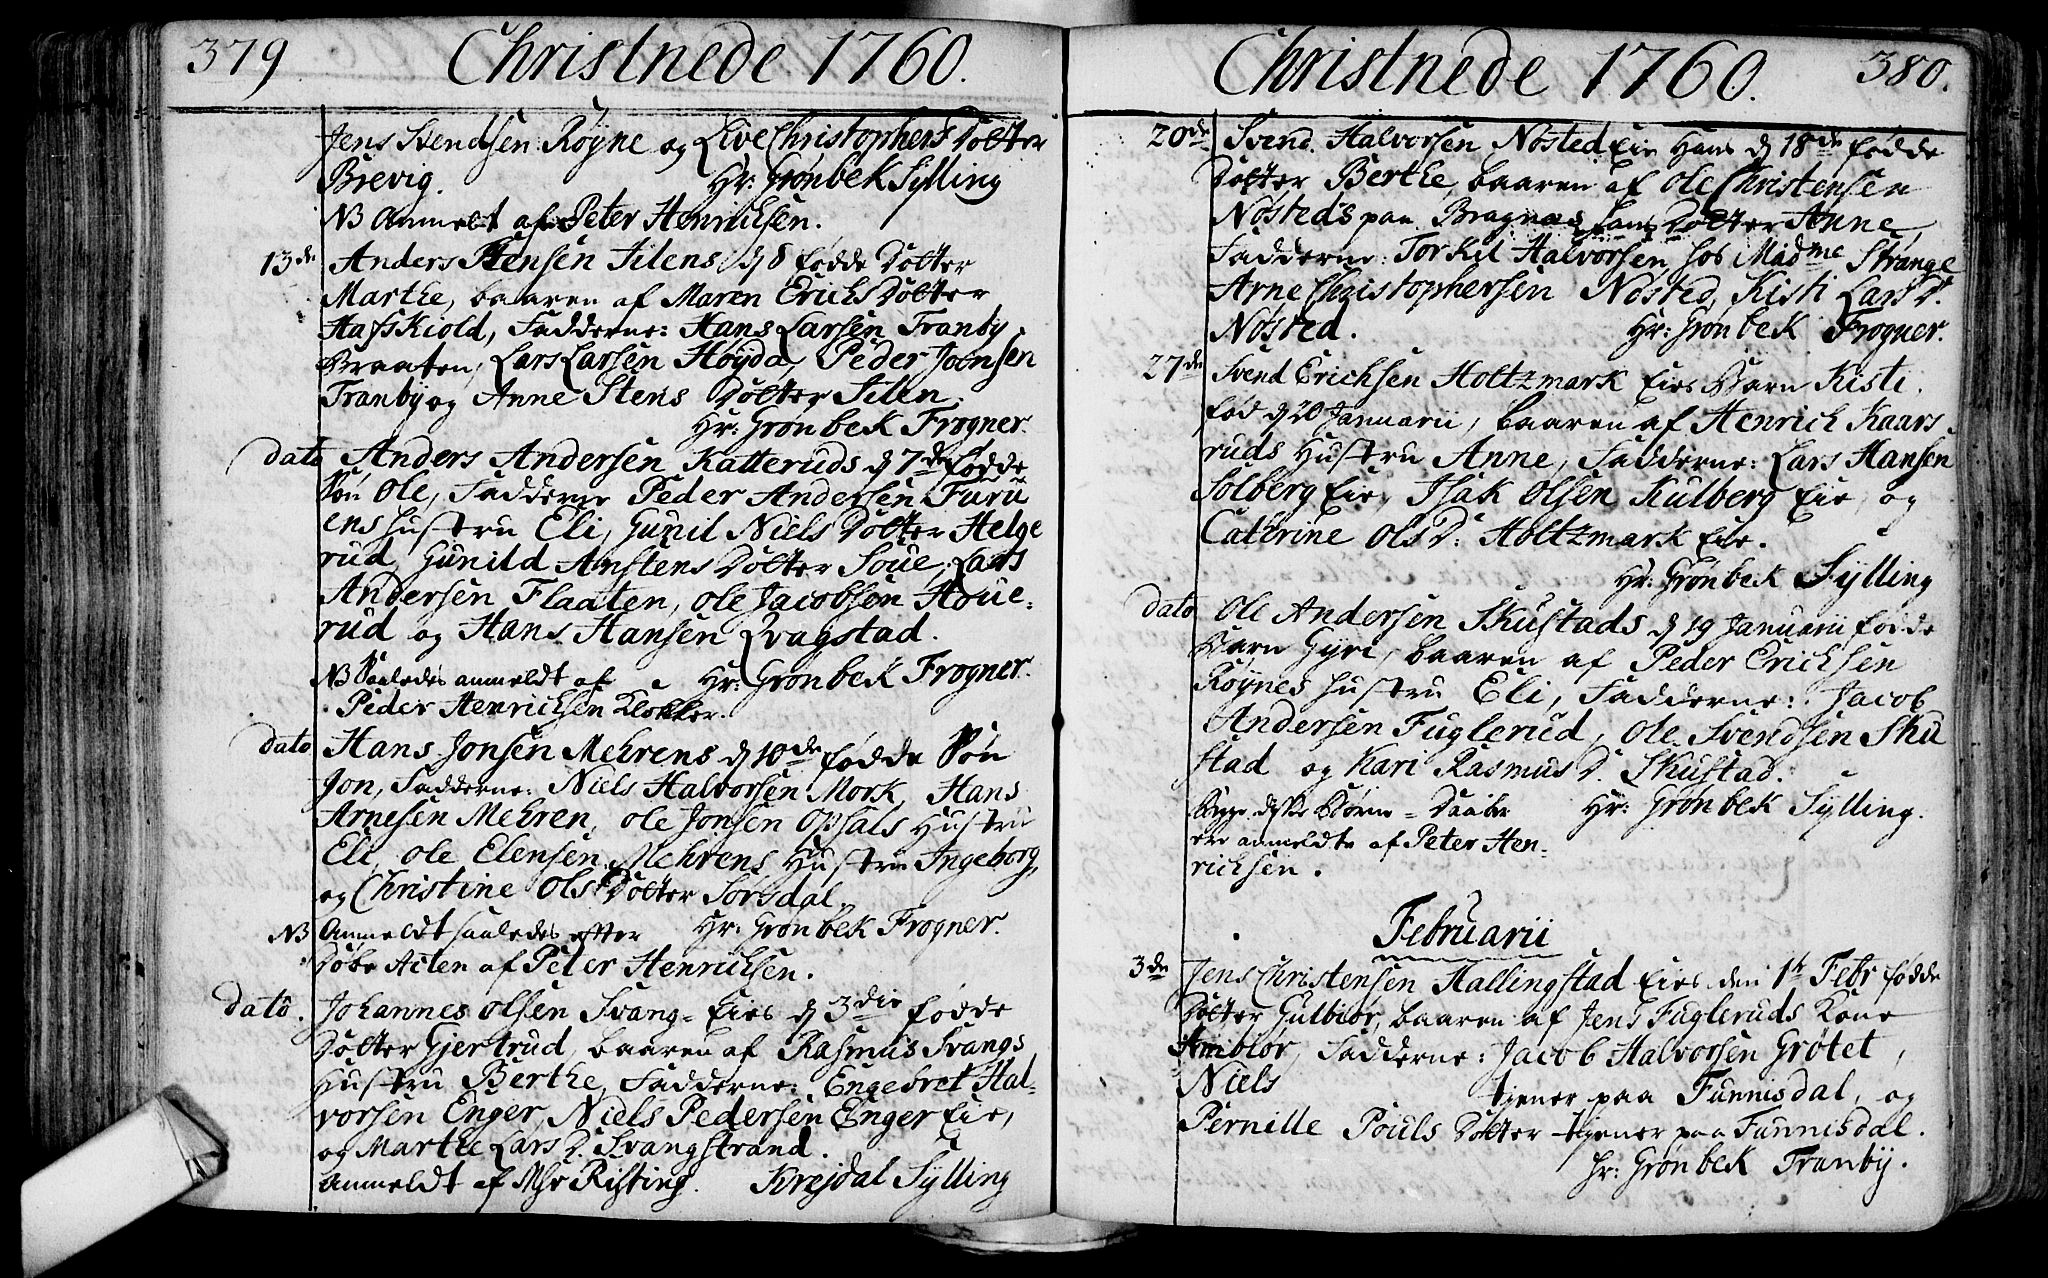 379
Christnede 1760.
Jens Svendsen Røyne og Live Christophers Dotter
Brevig. Hr: Grønbek Sylling
NB Anmelt af Peter Henrichsen.
13de Anders Stensen Silens d 8 fødde Dotter
Marthe, baaren af Maren Erichs Dotter
Hafskiold, Fadderne: Hans Larsen Tranby
Braaten, Lars Larsen Høyda, Peder Joensen
Tranby og Anne Stens Dotter Silen.
Hr: Grønbek Frogner.
dato Anders Andersen Katteruds d 7de fødde
Søn Ole, Fadderne Peder Andersen Furu
ens Hustru Eli, Gunil Niels Dotter Helge
rud, Gunild Anstens Dotter Soue, Lars
Andersen Flaaten, Ole Jacobsen Houe-
rud og Hans Hansen Qvagstad.
NB Saaledes anmeldt af Hr: Grønbek Frogner.
Peder Henrichsen Klokker.
dato Hans Jonsen Mehrens d 10de fødde Søn
Jon, Fadderne: Niels Halvorsen Mork, Hans
Arnesen Mehren, Ole Jonsen Opsals Hustru
Eli, Ole Elensen Mehrens Hustru Ingeborg,
og Christine Ols Dotter Sorsdal.
NB Anmeldt saaledes efter Hr: Grønbek Frogner.
Døbe Acten af Peter Henrichsen.
dato. Johannes Olsen Svang-Eies d 3die fødde
Dotter Gjertrud, baaren af Rasmus Svangs
Hustru Berthe, Fadderne: Engebret Hal-
vorsen Enger, Niels Pedersen Enger Eie,
og Marthe Lars D. Svangstrand.
anmeldt af Msr Risting. Krejdal Sylling
Christnede 1760. 380.
20de Svend Halvorsen Nøsted Eie Hans d 18de fødde
Dotter Berthe, baaren af Ole Christensen
Nøsteds paa Bragnæs hans Dotter Anne,
Fadderne: Torkil Halvorsen hos Madme Strange
Arne Christophersen Nøsted, Kisti Lars D.
Nøsted. Hr: Grønbek Frogner.
27de Svend Erichsen Holtzmark Eies Barn Kisti,
fød d 20 Januarii, baaren af Henrich Kaars
ruds Hustru Anne, Fadderne: Lars Hansen
Solberg Eie, Isak Olsen Kulberg Eie, og
Cathrine Ols D: Holtzmark Eie.
Hr: Grønbek Sylling
dato Ole Andersen Skustads d 19 Januarii fødde
Barn Gyri, baaren af Peder Erichsen
Røynes Hustru Eli, Fadderne: Jacob
Andersen Fuglerud, Ole Svendsen Sku
stad og Kari Rasmus D. Skustad.
Hr: Grønbek Sylling.
ere anmeldte af Peter Hen-
richsen.
Februarii
3de Jens Christensen Hallingstad Eies den 1st Febr fødde
Dotter Gulbiør, baaren af Jens Fugleruds Kone
Amblor, Fadderne: Jacob Halvorsen Grøtet,
Niels tjener paa Funnisdal, og
Pernille Pouls Dotter tjener paa Funnisdal.
Hr: Grønbek Tranby.